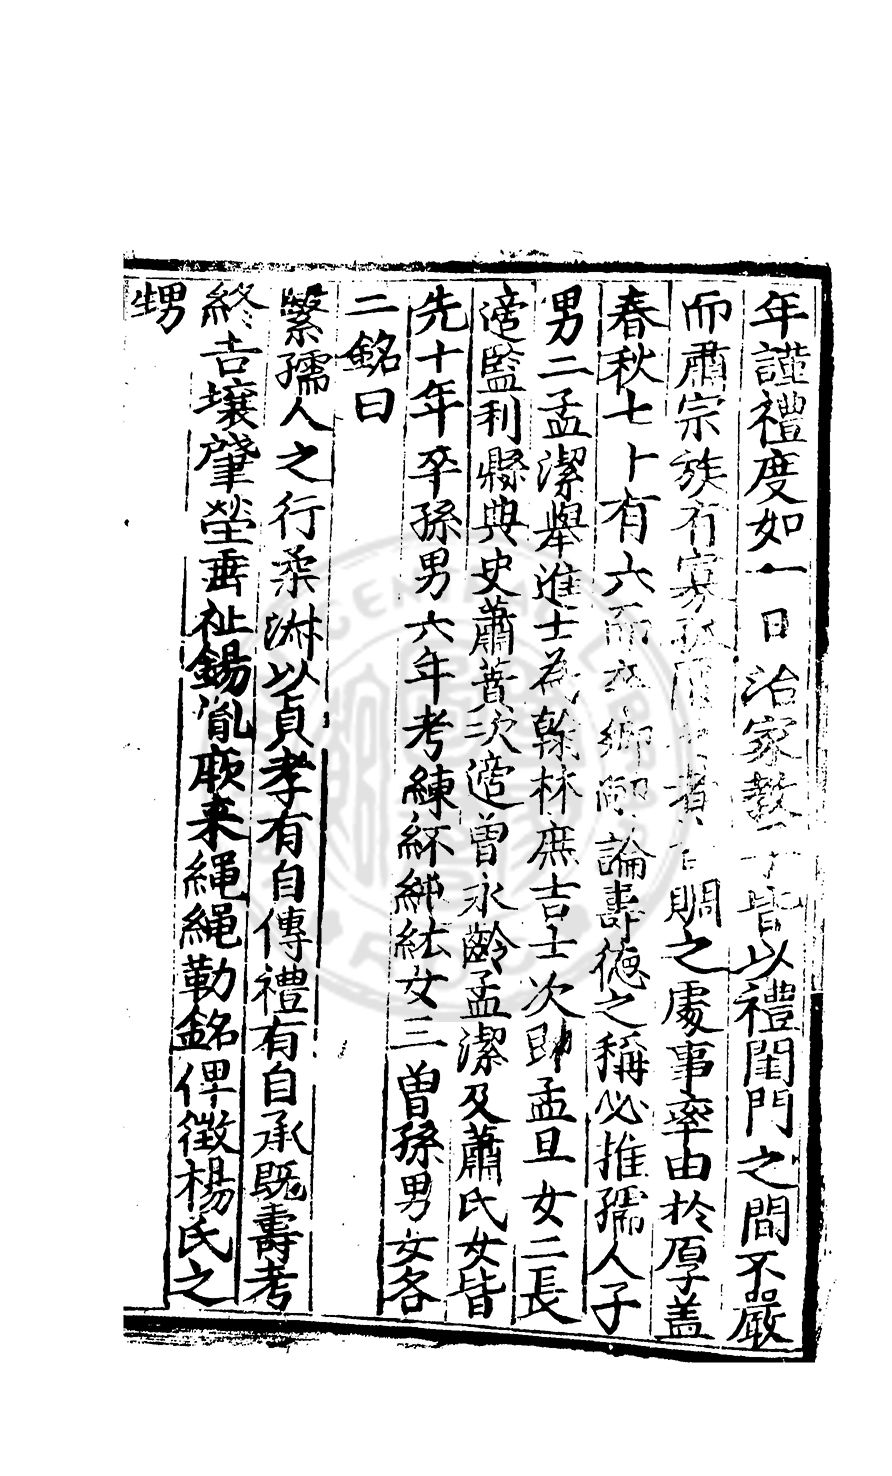 年謹禮度如一日治家教子皆以禮閨門之間不嚴
而肅宗族有寡孤者賙之處事率由於厚蓋
春秋七十有六而卒鄉鄰論壽德之稱必推孺人子
男二孟潔舉進士為翰林庶吉士次即孟旦女二長
適監利縣典史蕭蕡次適曾永齡孟潔及蕭氏女皆
先十年卒孫男六年考練紑紳紘女三曾孫男女各
二銘曰
繄孺人之行柔淋以貞孝有自傳禮有自承既壽考
終吉壤肇塋垂祉錫胤厥来繩繩勒銘俾徵楊氏之
甥